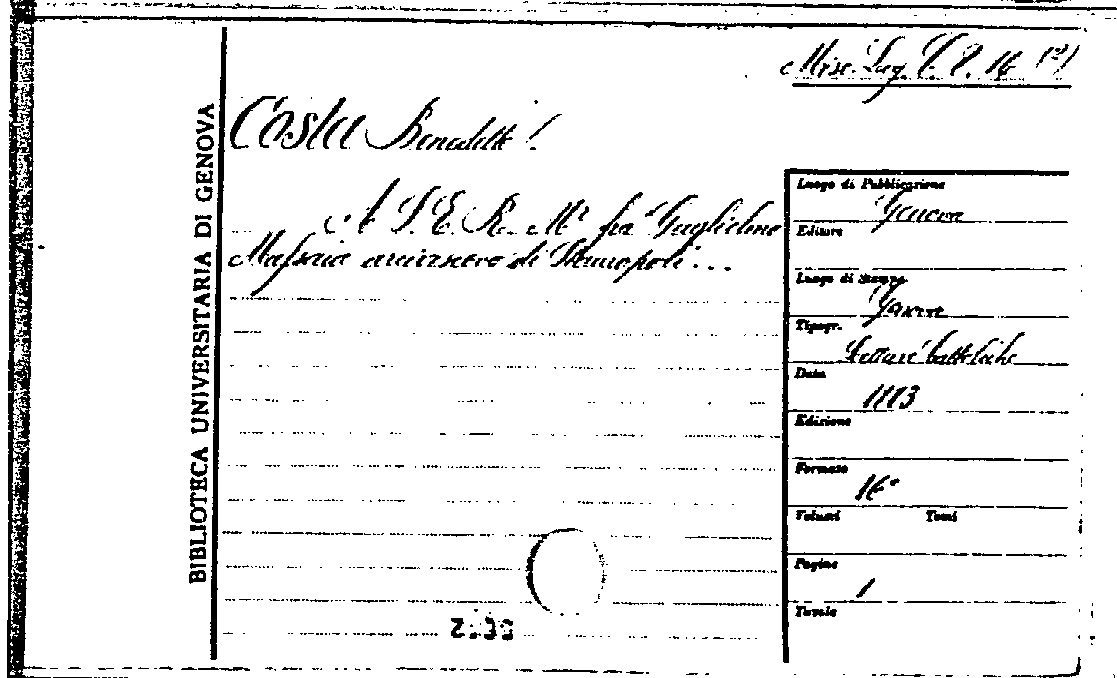 Misc. Lig. C. 2. 16 (2)
BIBLIOTECA UNIVERSITARIA DI GENOVA
Costa Benedetti
A S. E. R. Mª fra Guglielmo
Massaia arcivescovo di Stauropoli...
Luogo di Pubblicazione
Genova
Editore
Luogo di Stampa
Genova
Tipogr.
Letture Cattoliche
Data
Edizione
Formato
16º
Volumi Tomi
Pagine
1
Tavole